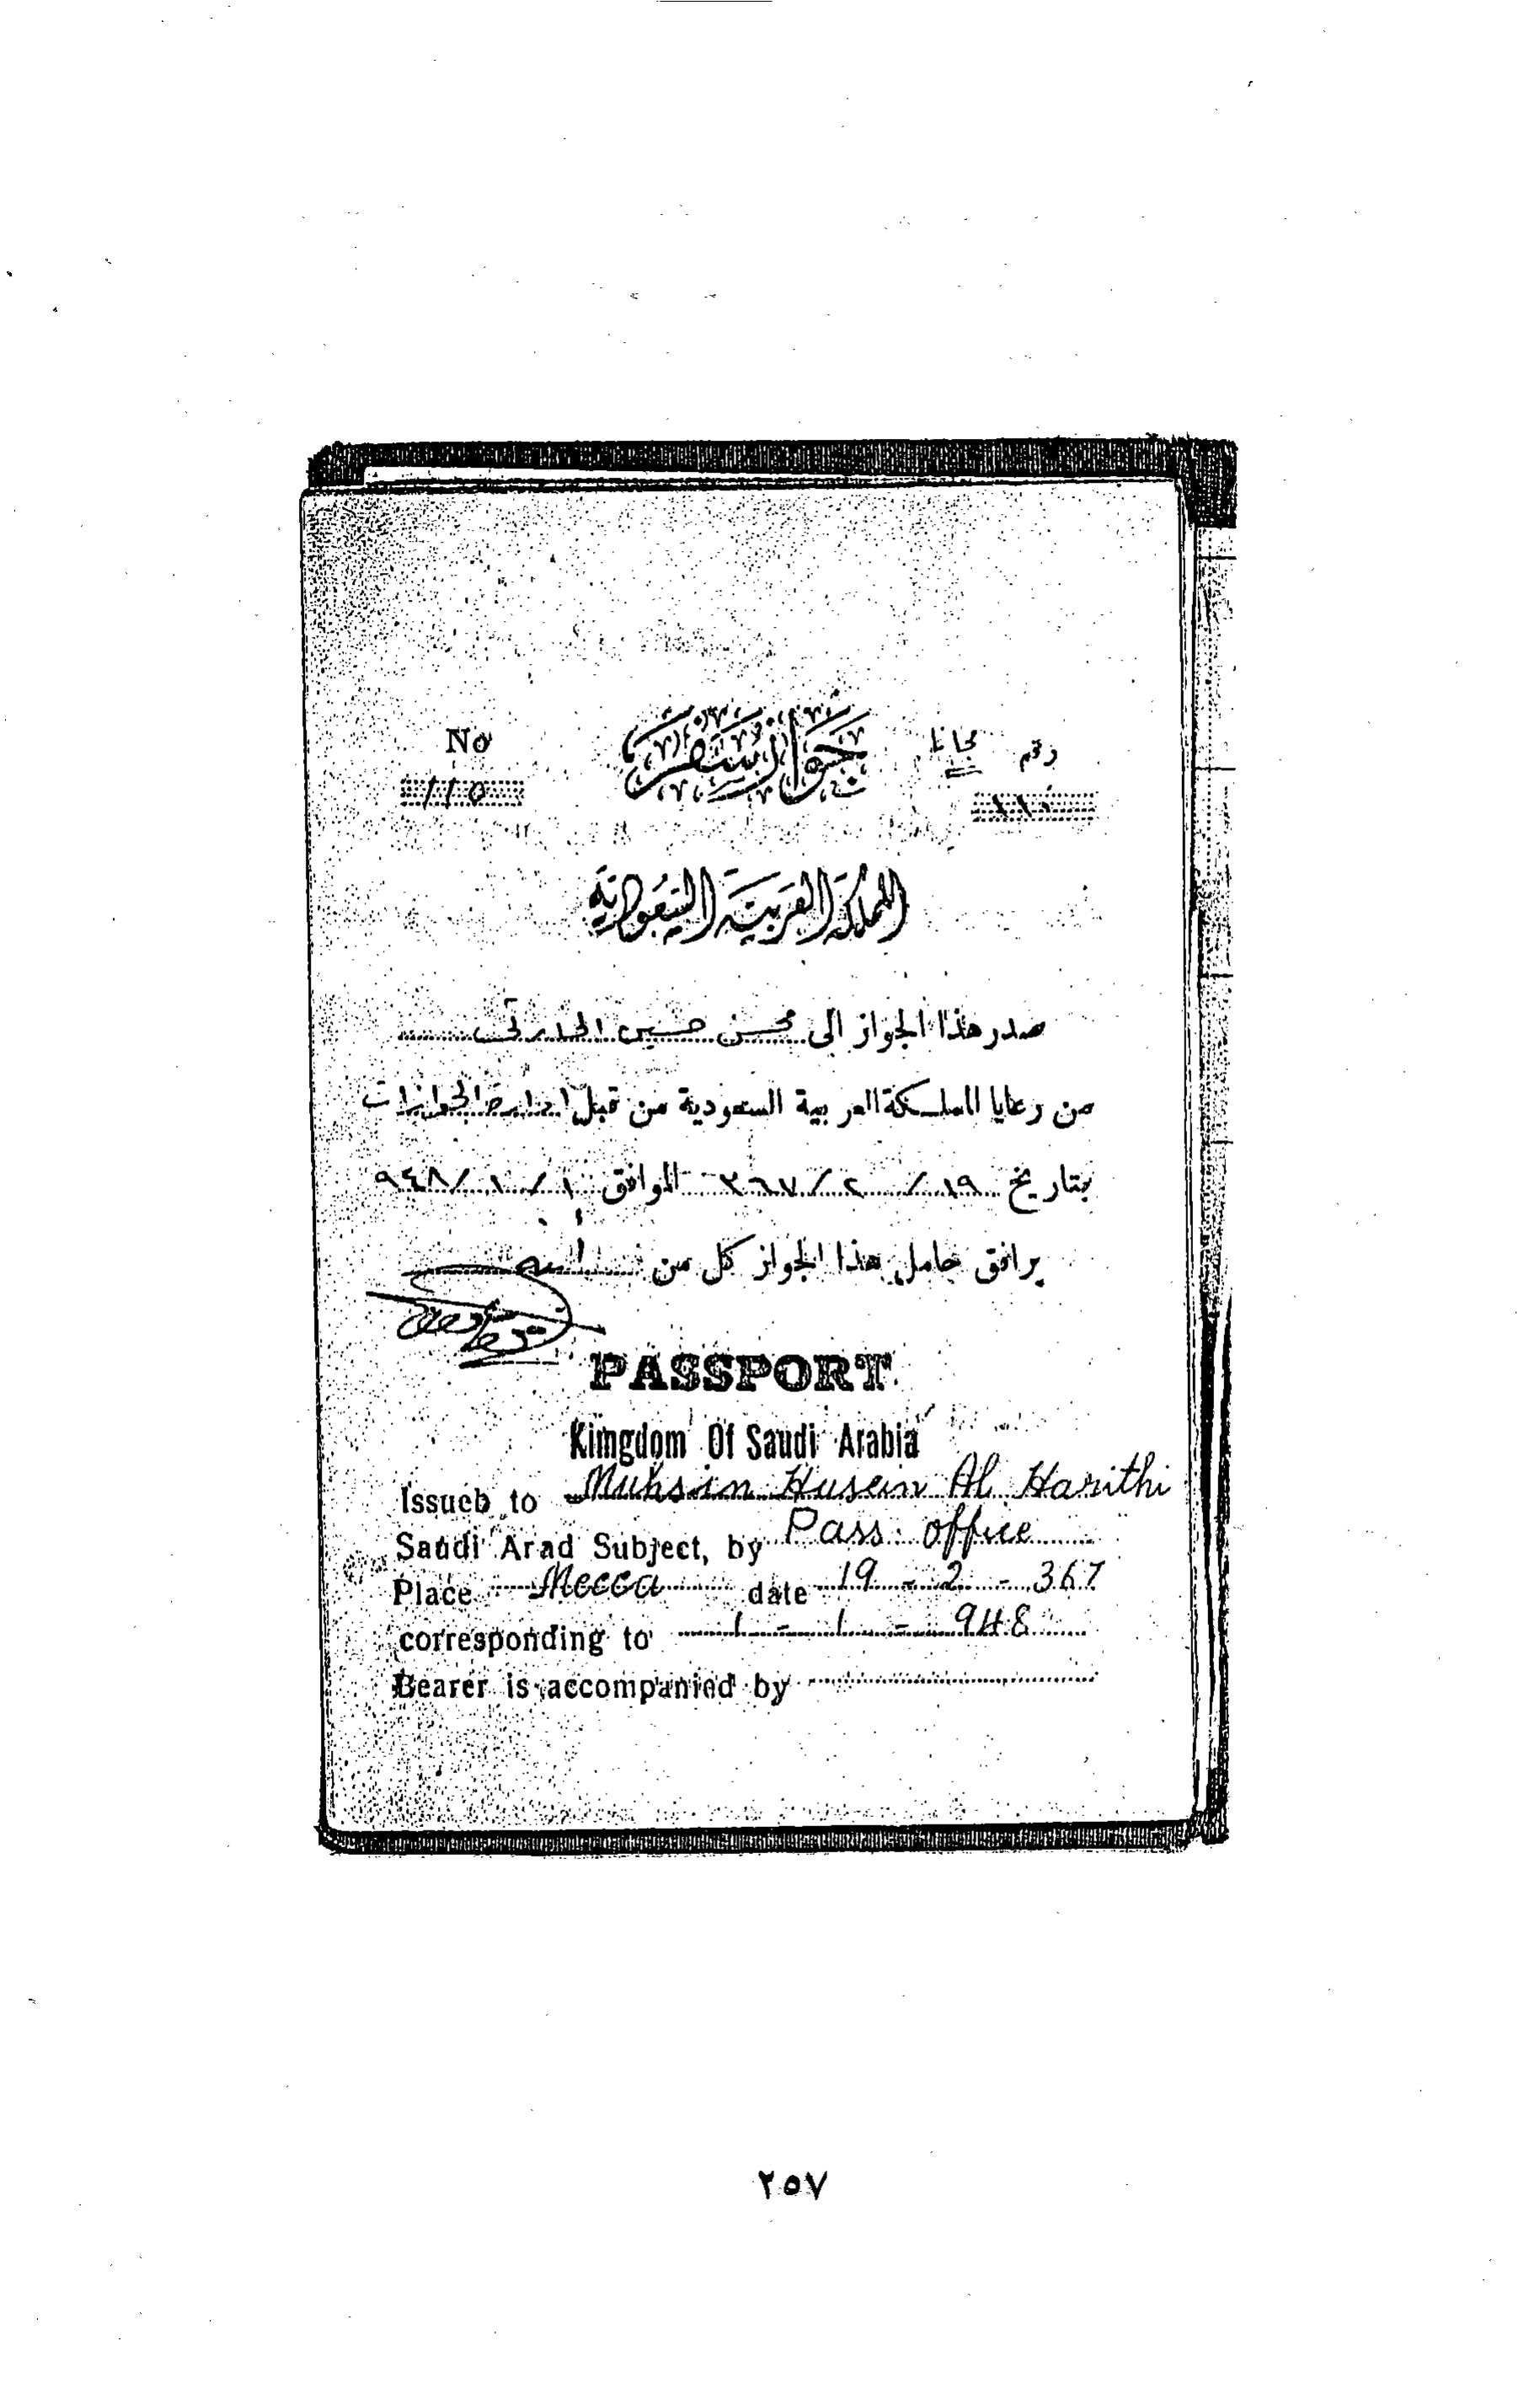 No جواز سفر مجانا رقم
110
المملكة العربية السعودية
صدر هذا الجواز الى محسن حسين الحارثي
من رعايا المملكة العربية السعودية من قبل ادارة الجوازات
بتاريخ ١٩/ ٢ /٣٦٧ الموافق ١/ ١ /٩٤٨
يرافق حامل هذا الجواز كل من
PASSPORT
Kimgdom Of Saudi Arabia
Issueb to Muhsin Husein Al Harithi
Saudi Arad Subject, by Pass. office
Place Mecca date 19 - 2 - 367
corresponding to 1 - 1 - 948
Bearer is accompanied by
٢٥٧